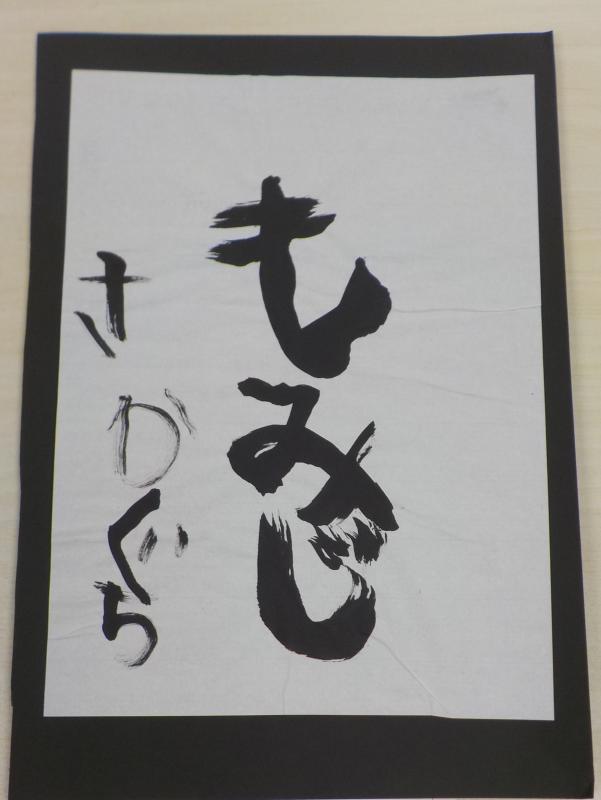 もみじ
さかぐち